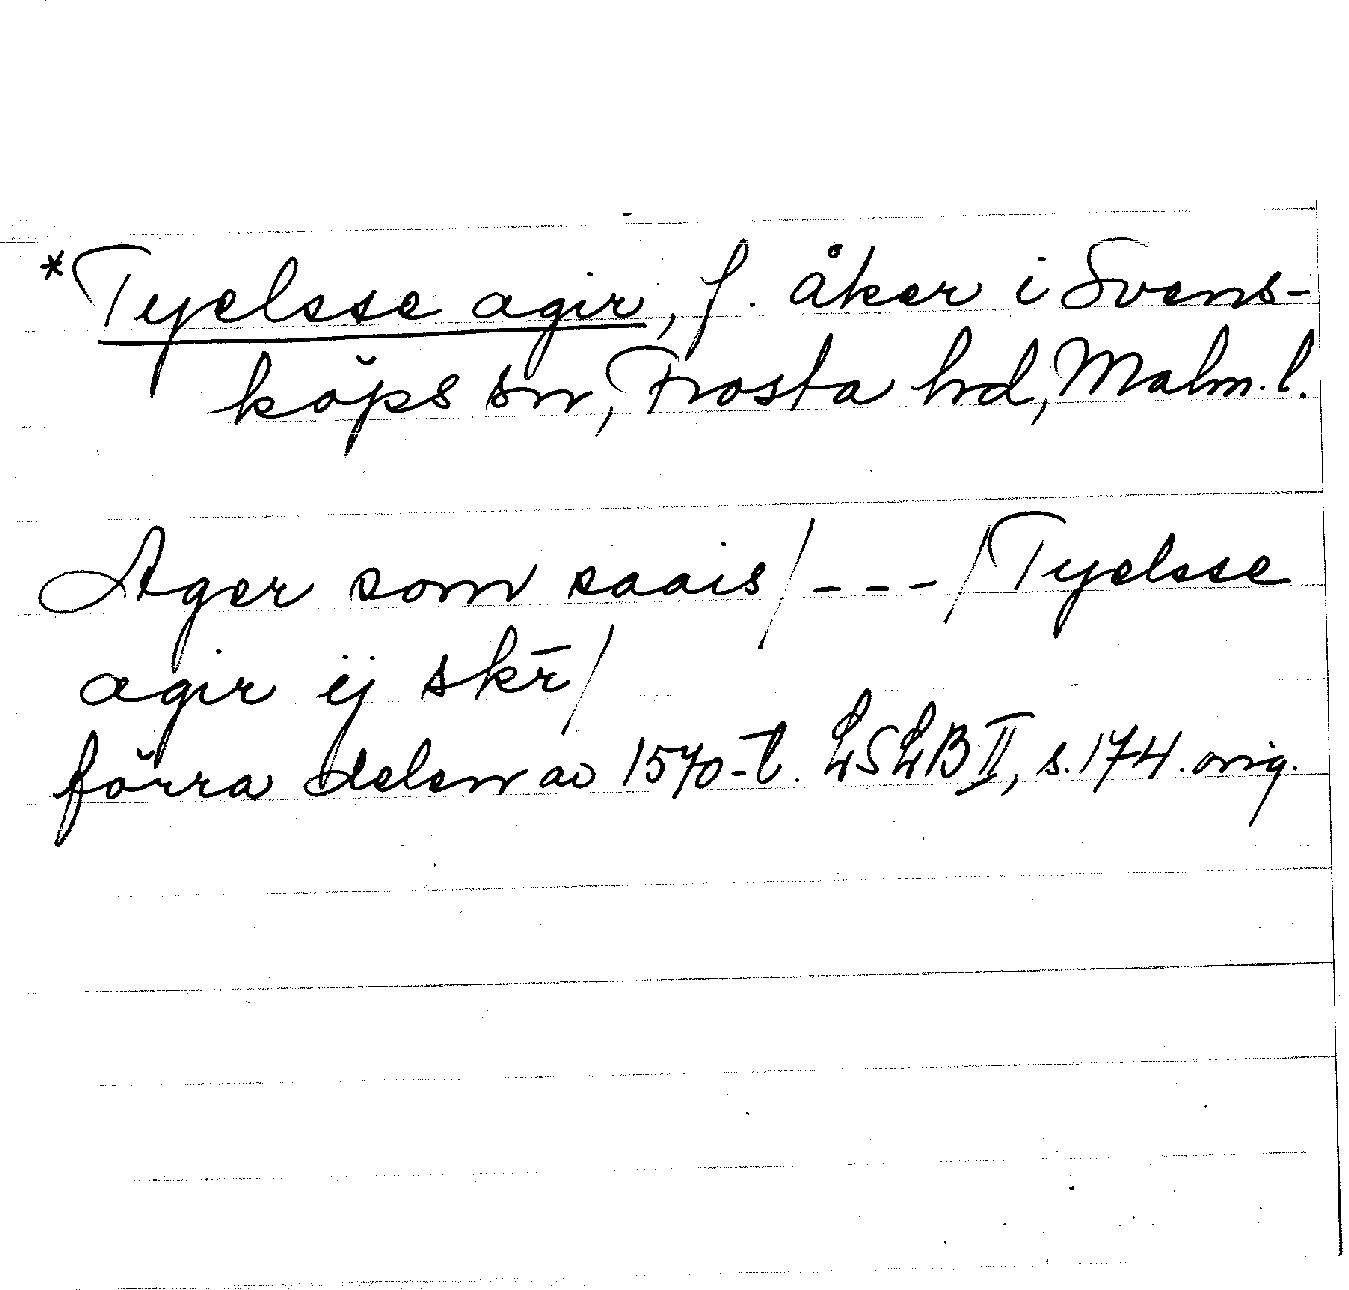 *Tyelsse agir, f. åker i Svens-
köps sn, Frosta hd, Malm. l.
Ager som saais/---/Tyelsse
agir ij skr̄/
förra delen av 1570-t. LSLB II, s. 174. orig.